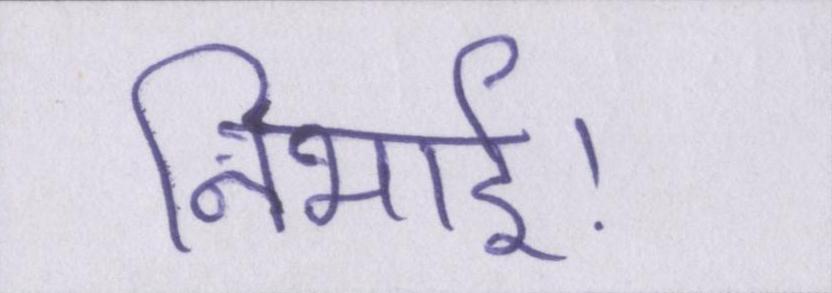 निभाई!